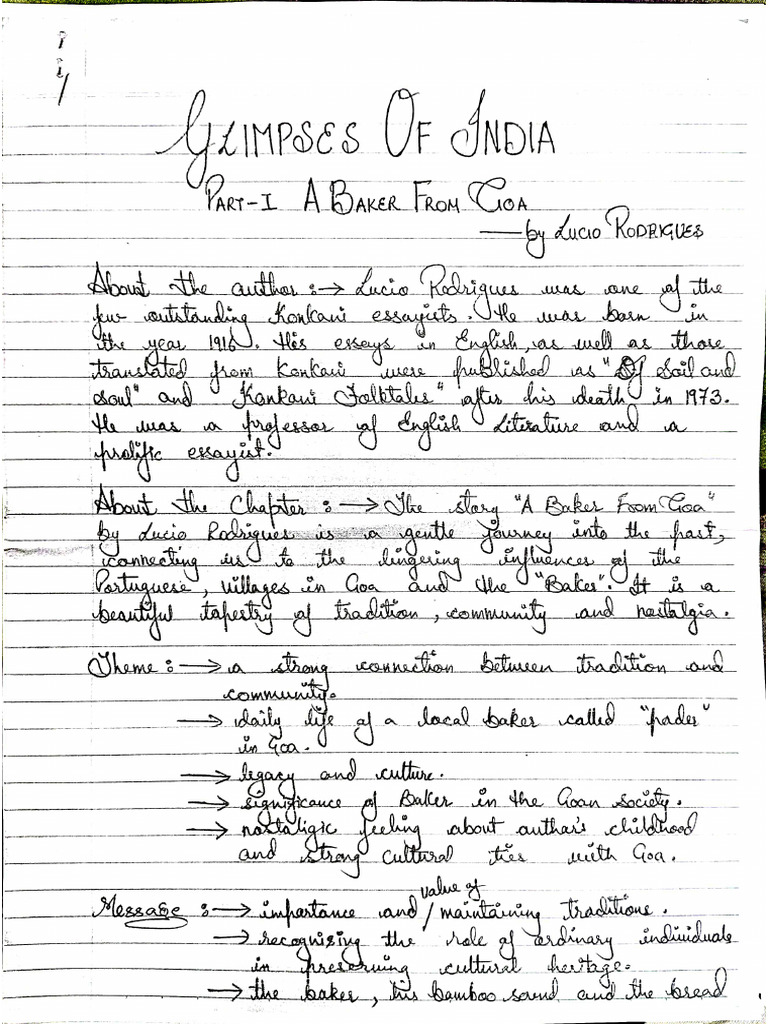 GLIMPSES OF INDIA
PART-I A BAKER FROM GOA
— by LUCIO RODRIGUES
About the author :→ Lucio Rodrigues was one of the
few outstanding Konkani essayists. He was born in
the year 1916. His essays in English, as well as those
translated from Konkani were published as "Of Soil and
Soul" and Konkani Folktales" after his death in 1973.
He was a professor of English Literature and a
prolific essayist.
About the Chapter :→ The story "A Baker From Goa"
by Lucio Rodrigues is a gentle journey into the past,
connecting us to the lingering influences of the
Portuguese, villages in Goa and the "Baker". It is a
beautiful tapestry of tradition, community and nostalgia.
Theme :→ a strong connection between tradition and
community.
→ daily life of a local baker called "pader"
in Goa.
→ legacy and culture.
→ significance of Baker in the Goan society.
→ nostaligic feeling about author's childhood
and strong cultural ties with Goa.
Message :→ importance and/value of maintaining traditions.
→ recognising the role of ordinary individuals
in preserving cultural heritage.
→ the baker, his bamboo sound and the bread